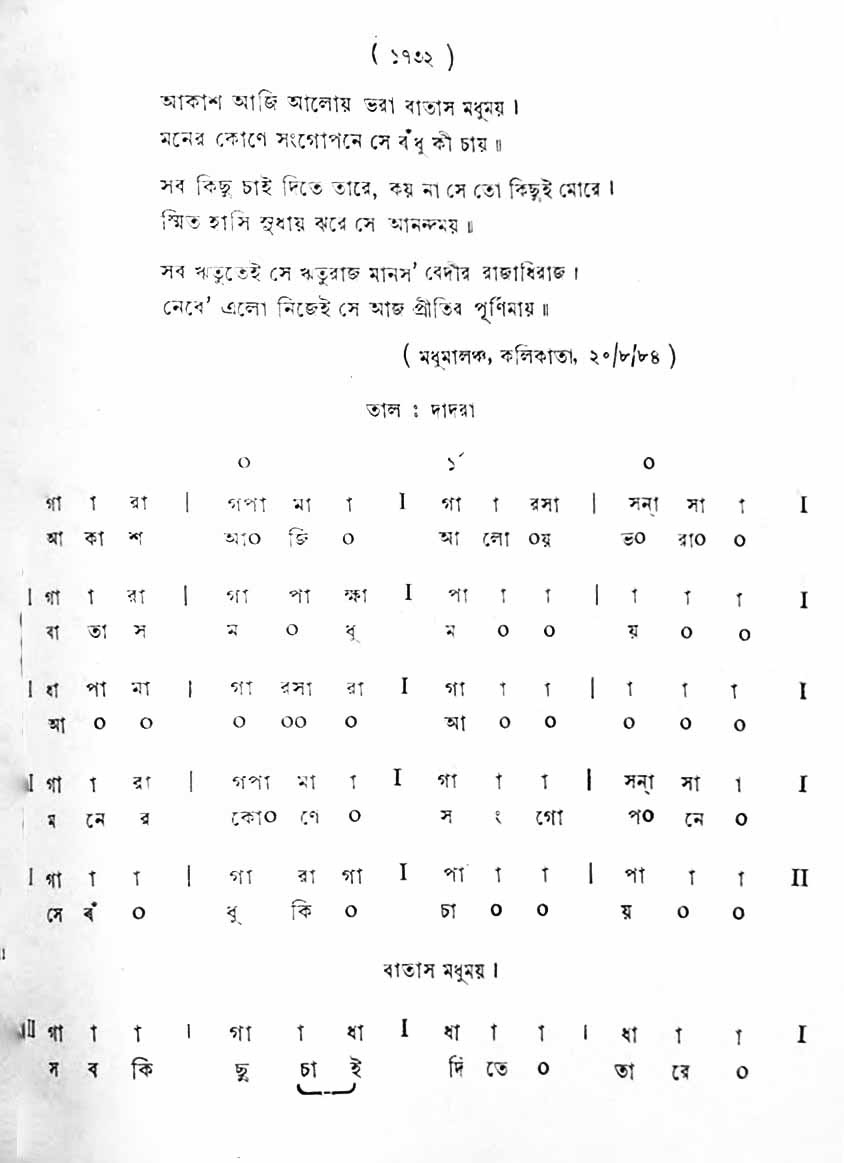 ( ১৭৩২ )
আকাশ আজি আলোয় ভরা বাতাস মধুময় ।
মনের কোণে সংগোপনে সে বঁধু কী চায় ॥
সব কিছু চাই দিতে তারে, কয় না সে তো কিছুই মোরে ।
স্মিত হাসি সুধায় ঝরে সে আনন্দময় ॥
সব ঋতুতেই সে ঋতুরাজ মানস' বেদীর রাজাধিরাজ ।
নেবে' এলো নিজেই সে আজ প্রীতির পূর্ণিমায় ॥
( মধুমালঞ্চ, কলিকাতা, ২০/৮/৮৪ )
তাল : দাদরা
০ ১´ ০
গা া রা | গপা মা া I গা া রসা | সন্া সা া I
আ কা শ আ০ জি ০ আ লো ০য় ভ০ রা০ ০
I গা া রা | গা পা ক্ষা I পা া া | া া া I
বা তা স ম ০ ধু ম ০ ০ য় ০ ০
I ধা পা মা | গা রসা রা I গা া া | া া া I
আ ০ ০ ০ ০০ ০ আ ০ ০ ০ ০ ০
I গা া রা | গপা মা া I গা া া | সন্া সা া I
ম নে র কো০ ণে ০ স ং গো প০ নে ০
I গা া া | গা রা গা I পা া া | পা া া II
সে বঁ ০ ধু কি ০ চা ০ ০ য় ০ ০
বাতাস মধুময় ।
II গা া া | গা া ধা I ধা া া | ধা া া I
স ব কি ছু চা ই দি তে ০ তা রে ০